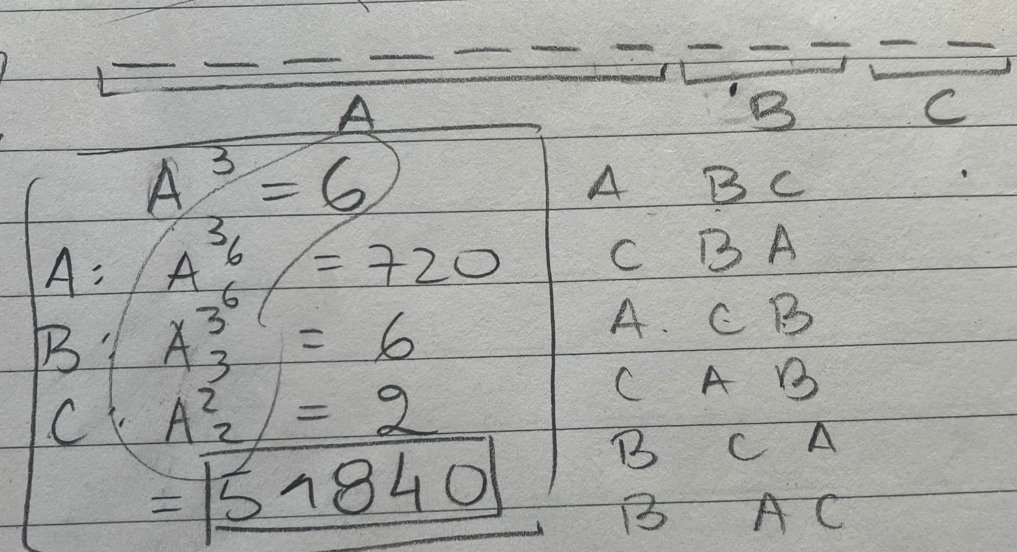 A B C
A³ = 6
A: A³₆ = 720
B: A³₃⁶ = 6
C: A²₂ = 2
= 51840
A B C
C B A
A. C B
C A B
B C A
B A C